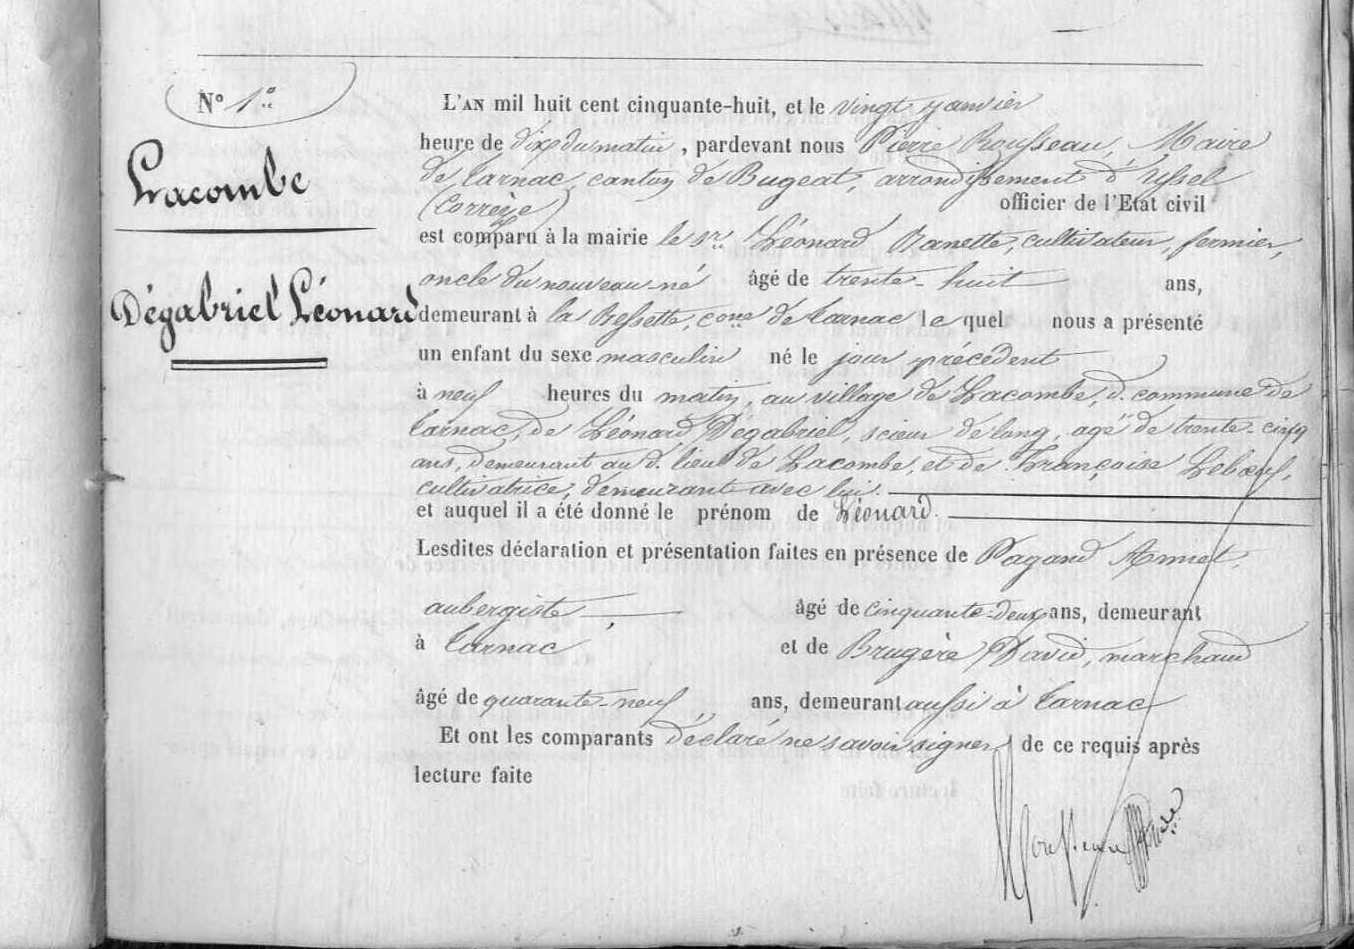 N° 1er
Lacombe
Dégabriel Léonard
L'AN mil huit cent cinquante-huit, et le vingt janvier
heure de dix du matin, pardevant nous Pierre Rousseau, Maire
de Tarnac, canton de Bugeat, arrondissement d'Ussel
(Corrèze) officier de l'Etat civil
est comparu à la mairie le sr Léonard Ranette, cultivateur, fermier,
oncle du nouveau-né âgé de trente-huit ans,
demeurant à la Bessette, cone de Tarnac lequel nous a présenté
un enfant du sexe masculin né le jour précédent
à neuf heures du matin, au village de Lacombe, d. commune de
Tarnac, de Léonard Dégabriel, scieur de long, agé de trente-cinq
ans, demeurant au d. lieu de Lacombe, et de Françoise Lebœuf,
cultivatrice, demeurant avec lui.
et auquel il a été donné le prénom de Léonard.
Lesdites déclaration et présentation faites en présence de Pagand Annet,
aubergiste, âgé de cinquante-deux ans, demeurant
à Tarnac et de Brugère David, marchand
âgé de quarante-neuf ans, demeurant aussi à Tarnac
Et ont les comparants déclaré ne savoir signer de ce requis après
lecture faite
Rousseau